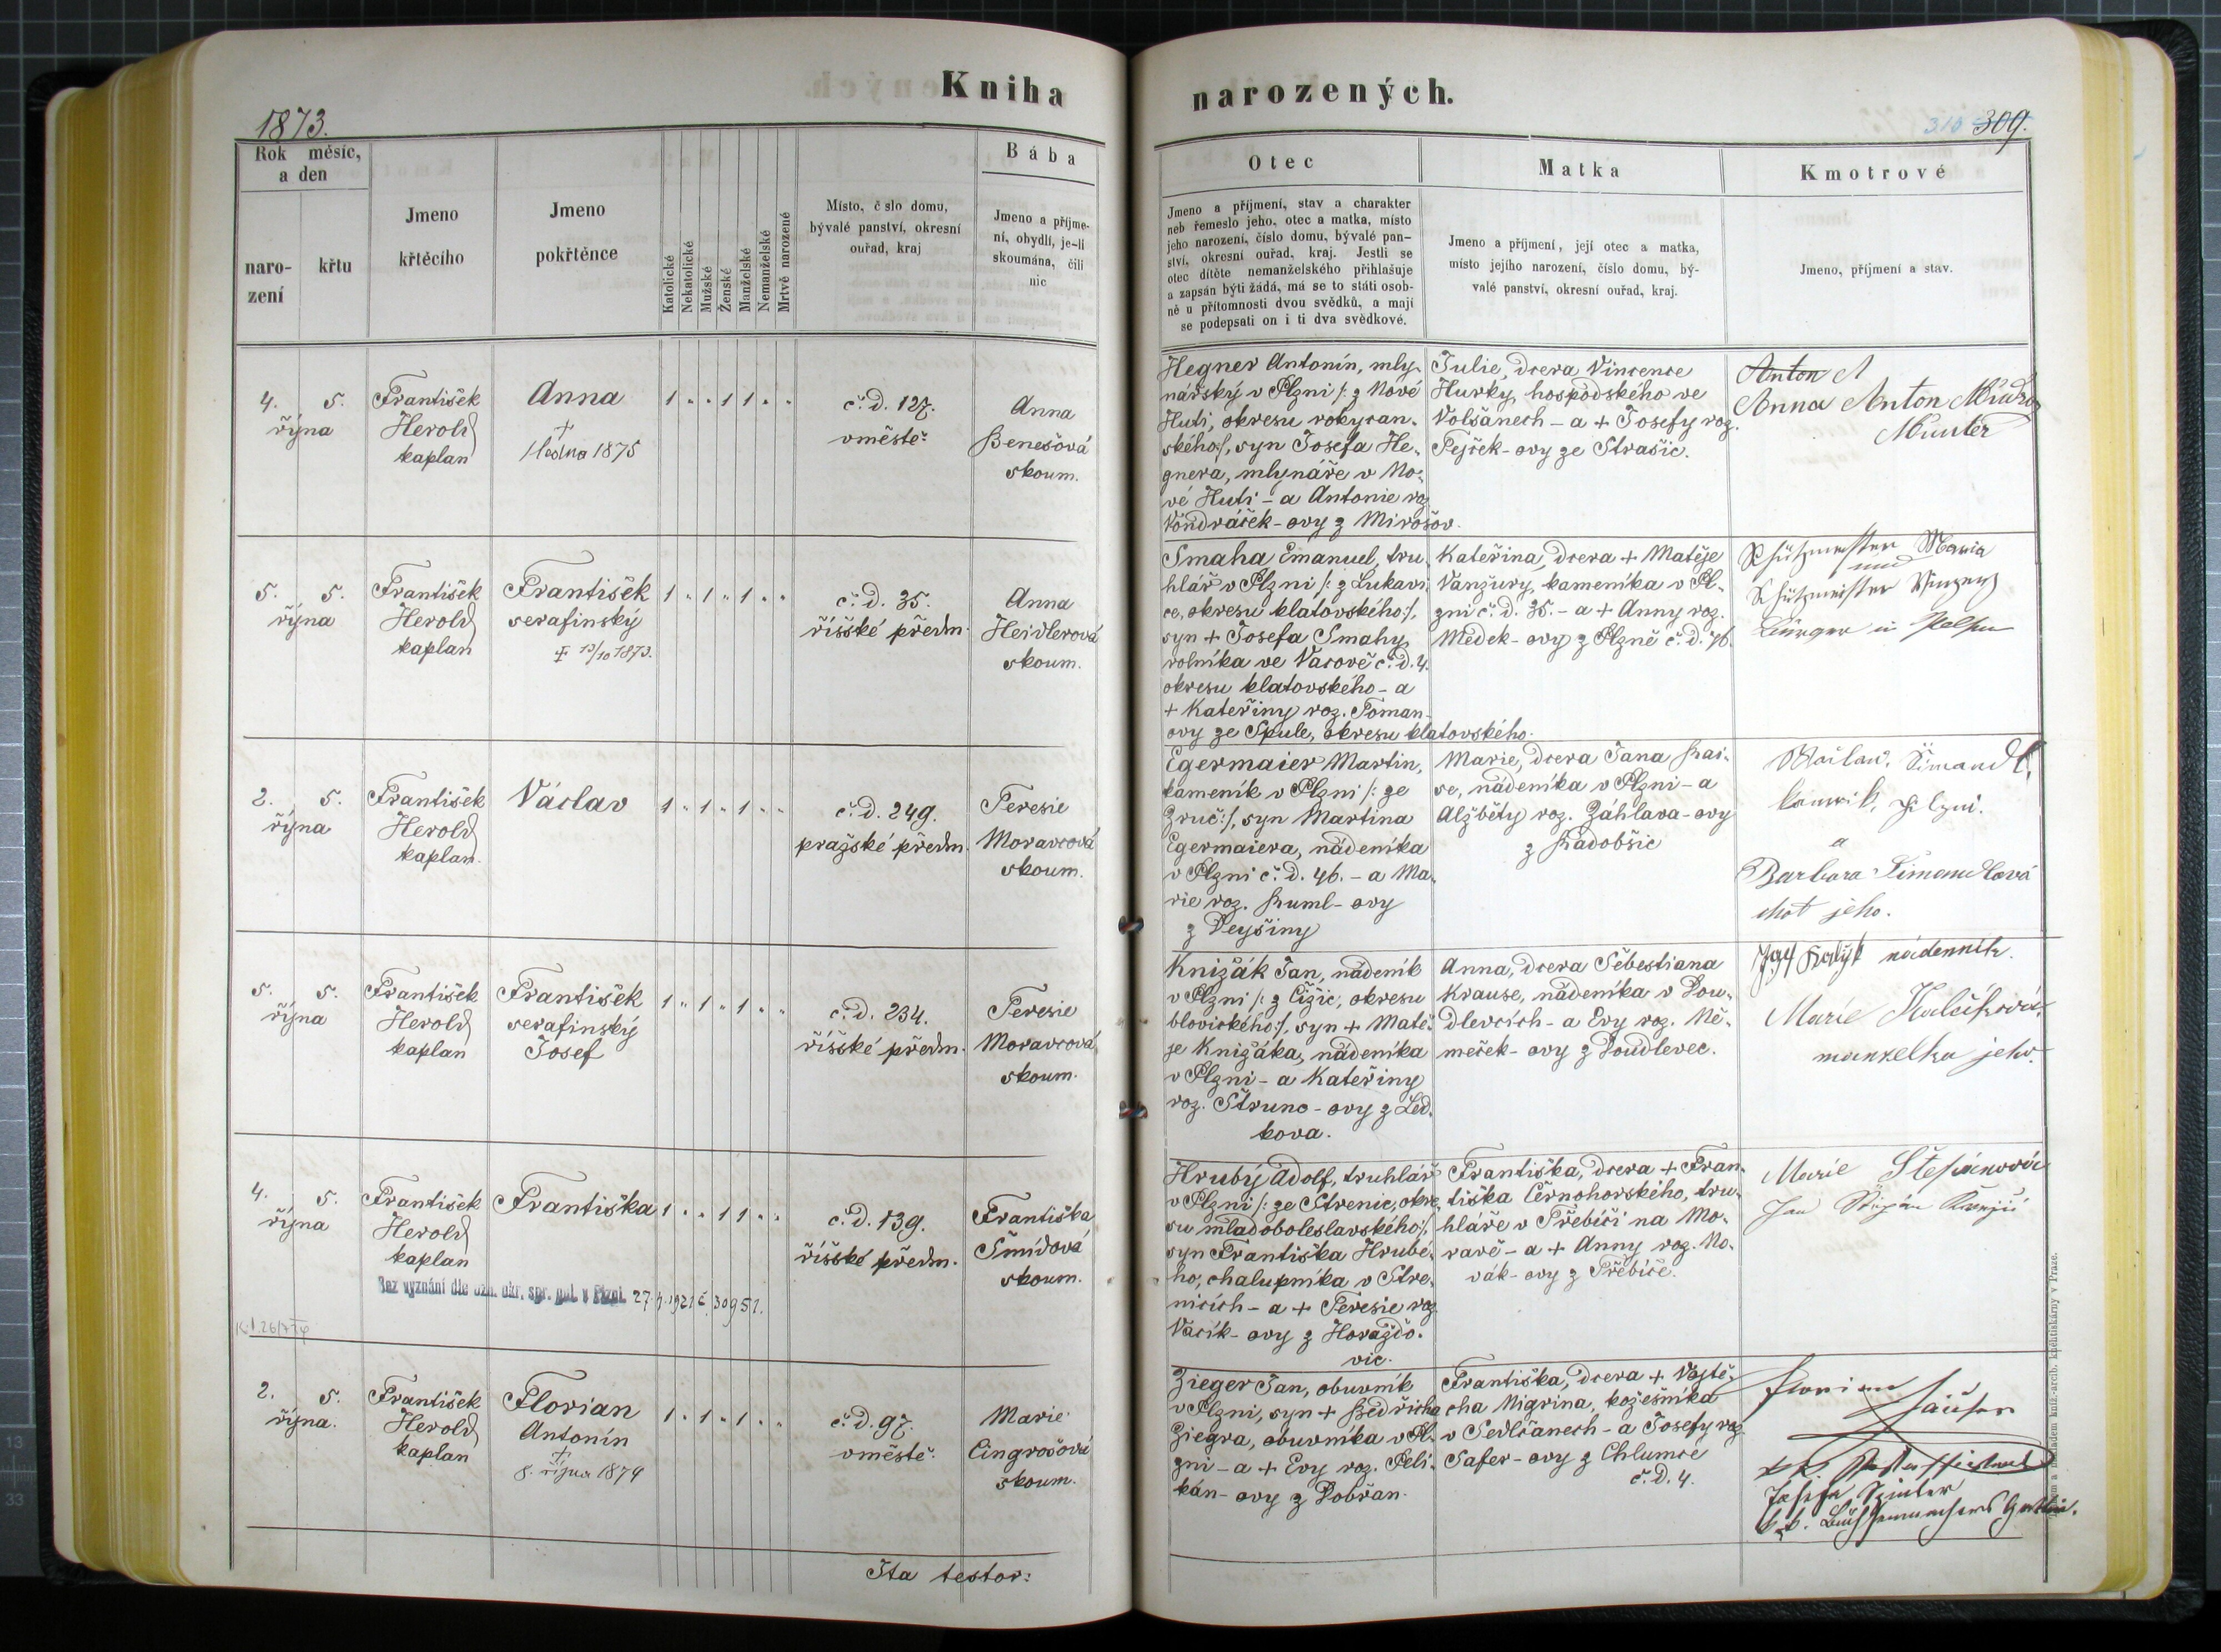 Kniha
narozených.
1873.
310 309.
Rok měsíc,
a den
naro-
zení
křtu
Jmeno
křtěcího
Jmeno
pokřtěnce
Katolické
Nekatolické
Mužské
Ženské
Manželské
Nemanželské
Mrtvě narozené
Místo, č slo domu,
bývalé panství, okresní
ouřad, kraj
Bába
Jmeno a příjme-
ní, obydlí, je-li
skoumána, čili
nic
Otec
Jmeno a příjmení, stav a charakter
neb řemeslo jeho, otec a matka, místo
jeho narození, číslo domu, bývalé pan-
ství, okresní ouřad, kraj. Jestli se
otec dítěte nemanželského přihlašuje
a zapsán býti žádá, má se to státi osob-
ně u přítomnosti dvou svědků, a mají
se podepsati on i ti dva svědkové.
Matka
Jmeno a příjmení, její otec a matka,
místo jejího narození, číslo domu, bý-
valé panství, okresní ouřad, kraj.
Kmotrové
Jmeno, příjmení a stav.
4. 5.
října
František
Herold
kaplan
Anna
† 1 ledna 1875
1 " " 1 1 " "
č. d. 127.
v městě.
Anna
Benešová
skoum.
Hegner Antonín, mly-
nářský v Plzni /: z Nové
Huti, okresu rokycan-
ského:/, syn Josefa He-
gnera, mlynáře v No-
vé Huti - a Antonie roz.
Vondráček-ovy z Mirošov.
Julie, dcera Vincence
Hurky, hospodského ve
Volšanech - a + Josefy roz.
Pejček-ovy ze Strašic.
Anton A
Anna Anton
5. 5.
října
František
Herold
kaplan
František
serafinský
† 13/10 1873.
1 " 1 " 1 " "
č. d. 35.
říšské předm.
Anna
Heidlerová
skoum.
Smaha Emanuel, tru-
hlář v Plzni /: z Lukavi-
ce, okresu klatovského:/,
syn + Josefa Smahy,
rolníka ve Vacově č. d. 4.
okresu klatovského - a
+ Kateřiny roz. Toman-
ovy ze Spule, okresu klatovského.
Kateřina, dcera + Matěje
Vanžury, kameníka v Pl-
zni č. d. 35. - a + Anny roz.
Medek-ovy z Plzně č. d. 46.
Schützmeister Maria
und
Schützmeister Vinzenz
Bürger in Pilsen
2. 5.
října
František
Herold
kaplan.
Václav
1 " 1 " 1 " "
č. d. 249.
pražské předm.
Teresie
Moravcová
skoum.
Egermaier Martin,
kameník v Plzni /: ze
Zruč:/, syn Martina
Egermaiera, nádeníka
v Plzni č. d. 46. - a Ma-
rie roz. Kuml-ovy
z Dejšiny
Marie, dcera Jana Kai-
se, nádeníka v Plzni - a
Alžběty roz. Záhlava-ovy
z Radobšic
Šimandl,
a
Barbara Šimandlová
choť jeho.
5. 5.
října
František
Herold
kaplan
František
serafinský
Josef
1 " 1 " 1 " "
č. d. 234.
říšské předm.
Teresie
Moravcová
skoum.
Knižák Jan, nádeník
v Plzni /: z Čižic, okresu
blovického:/, syn + Matě-
je Knižáka, nádeníka
v Plzni - a Kateřiny
roz. Struno-ovy z Led-
kova.
Anna, dcera Šebestiana
Krause, nádeníka v Dou-
dlevcích - a Evy roz. Ně-
meček-ovy z Doudlevec.
nádenník.
Marie
manželka jeho.
4. 5.
října
František
Herold
kaplan
Františka
1 " " 1 1 " "
č. d. 139.
říšské předm.
Františka
Šmídová
skoum.
Bez vyznání dle ozn. okr. spr. pol. v Plzni 27.4.1921 č. 30951.
Hrubý Adolf, truhlář
v Plzni /: ze Strenic, okre-
su mladoboleslavského:/,
syn Františka Hrubé-
ho, chalupníka v Stre-
nicích - a + Teresie roz.
Vacík-ovy z Horažďo-
vic.
Františka, dcera + Fran-
tiška Černohorského, tru-
hláře v Třebíči na Mo-
ravě - a + Anny roz. No-
vák-ovy z Třebíče.
Marie Štěpánová
Jan Štěpán
2. 5.
října.
František
Herold
kaplan
Florian
Antonín
†
8. října 1874
1 " 1 " 1 " "
č. d. 97.
v městě.
Marie
Cingrošová
skoum.
Zieger Jan, obuvník
v Plzni, syn + Bedřicha
Ziegra, obuvníka v Pl-
zni - a + Evy roz. Peli-
kán-ovy z Dobřan.
Františka, dcera + Vojtě-
cha Nigrina, kožešníka
v Sedlčanech - a Josefy roz.
Safer-ovy z Chlumce
č. d. 4.
Florian
Josefa
Ita testor: